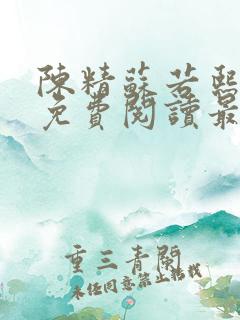 陳精蘇若熙
免費閱讀最
重三青閣
未经同意禁止转载